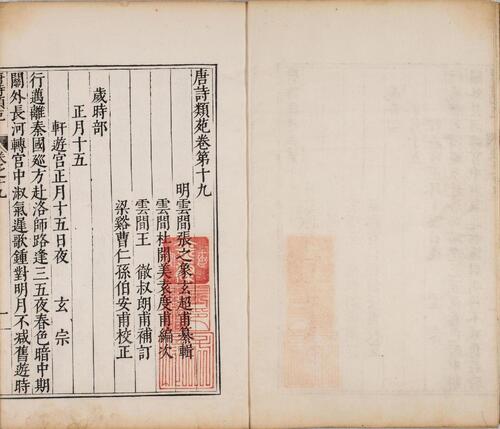 唐詩類苑卷第十九
明雲間張之象玄超甫纂輯
雲間杜開美袞度甫編次
雲間王徹叔朗甫補訂
梁谿曹仁孫伯安甫校正
歲時部
正月十五
軒遊宮正月十五日夜 玄宗
行邁離秦國廵方赴洛師路逢三五夜春色暗中期
關外長河轉宮中淑氣遲歌鍾對明月不减舊遊時